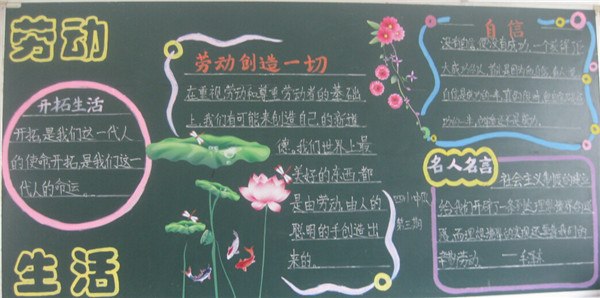 劳动
生活
开拓生活
开拓,是我们这一代人
的使命开拓,是我们这一
代人的命运。
劳动创造一切
在重视劳动和尊重劳动者的基础
上,我们有可能来创造自己的新道
德。我们世界上最
美好的东西都
是由劳动、由人的
聪明的手创造出
来的。
第三期
自信
没有自信,便没有成功。一个获得了巨
大成功的人,首先是因为他自信。
名人名言
社会主义制度的建立
给我们开辟了一条到达理想境界的道
路,而理想境界的实现还要靠我们的
辛勤劳动。——毛泽东